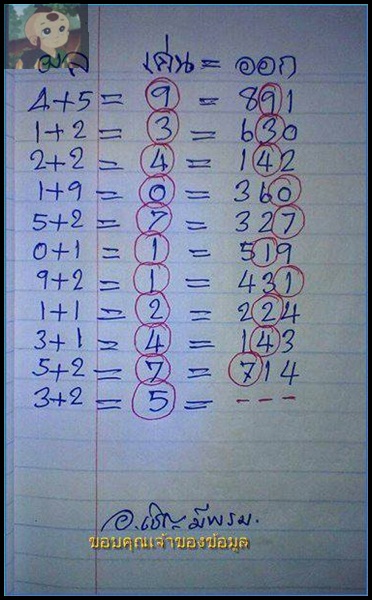 ผล เด่น = ออก
4+5 = 9 = 891
1+2 = 3 = 630
2+2 = 4 = 142
1+9 = 0 = 360
5+2 = 7 = 327
0+1 = 1 = 519
9+2 = 1 = 431
1+1 = 2 = 224
3+1 = 4 = 143
5+2 = 7 = 714
3+2 = 5 = ---
อ. มีพรม.
ขอบคุณเจ้าของข้อมูล